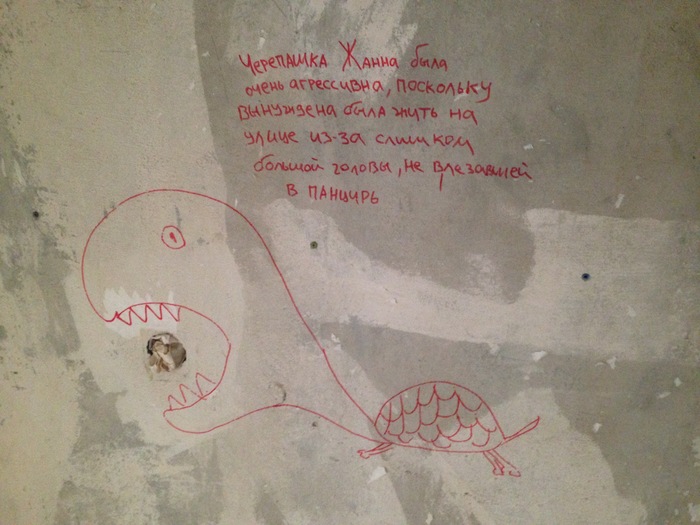 Черепашка Жанна была
очень агрессивна, поскольку
вынуждена была жить на
улице из-за слишком
большой головы, не влезавшей
в панцирь